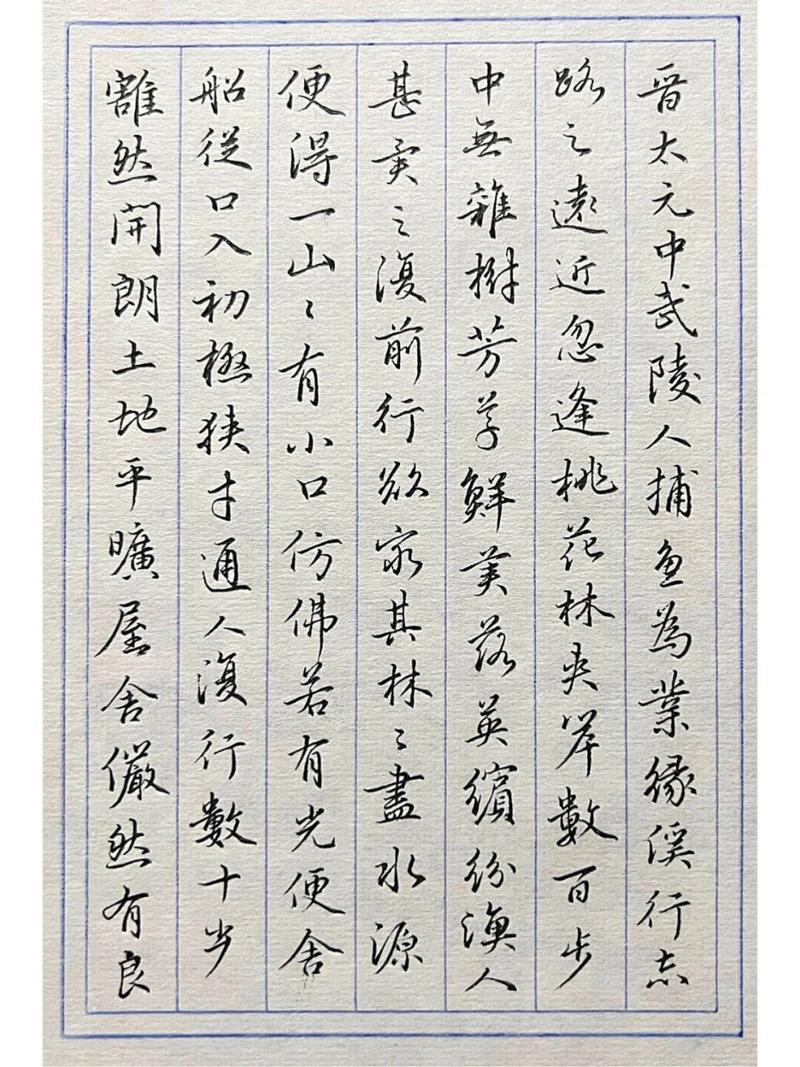 晉太元中武陵人捕魚為業緣溪行忘
路之遠近忽逢桃花林夾岸數百步
中無雜樹芳草鮮美落英繽紛漁人
甚異之復前行欲窮其林〻盡水源
便得一山〻有小口仿佛若有光便舍
船從口入初極狹才通人復行數十步
豁然開朗土地平曠屋舍儼然有良